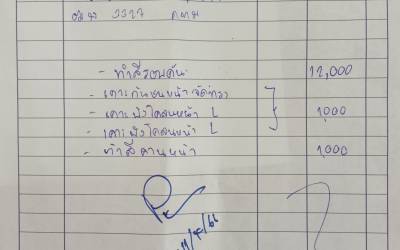 3327 กทม
- ทำสีรอบคัน 12,000
- เคาะกันชนหน้า จัดทรง
- เคาะบังโคลนหน้า L 1,000
- เคาะบังโคลนหน้า L
- ทำสีคานหน้า 1,000